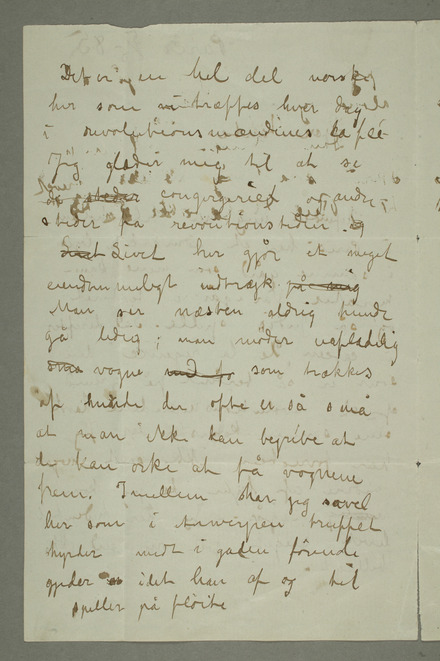 Det er en hel del norske
her som vi træffes hver dag
i revolutionsmændenes café
Jeg glæder mig til at se
steder og andre
steder fra revolutionstiden og
Livet Livet her gjør et meget
eiendommeligt indtryk på mig
Man ser næsten aldrig hunde
gå ledig; man møder uafladelig
små vogne som trækkes
af hunde der ofte er så små
at man ikke kan begribe at
de kan orke at få vognene
frem. Imellem har jeg såvel
her som i Antwerpen truffet
hyrder midt i gaden førende
gjeder idet han af og til
spiller på fløite